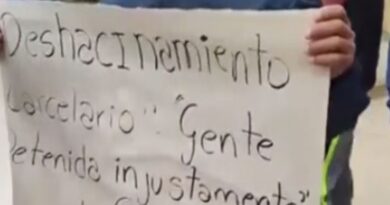 Deshacinamiento
Carcelario": "Gente
Detenida injustamente"